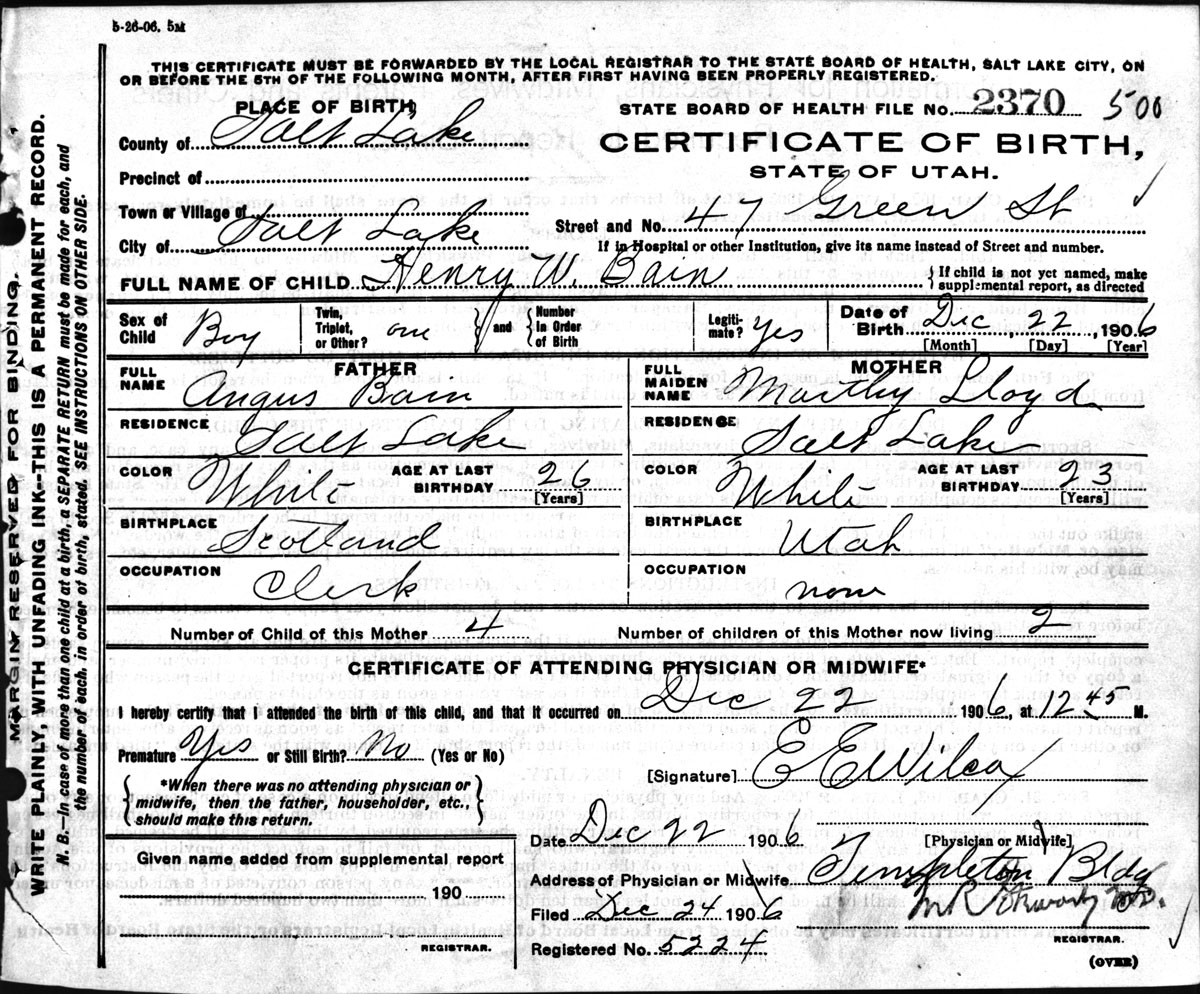 5-26-06. 5M
THIS CERTIFICATE MUST BE FORWARDED BY THE LOCAL REGISTRAR TO THE STATE BOARD OF HEALTH, SALT LAKE CITY, ON
OR BEFORE THE 5TH OF THE FOLLOWING MONTH, AFTER FIRST HAVING BEEN PROPERLY REGISTERED.
PLACE OF BIRTH
STATE BOARD OF HEALTH FILE No. 2370 500
County of Salt Lake
CERTIFICATE OF BIRTH,
STATE OF UTAH.
Precinct of
Town or Village of
Street and No. 47 Green St
City of Salt Lake
If in Hospital or other Institution, give its name instead of Street and number.
FULL NAME OF CHILD Henry W. Bain
{If child is not yet named, make
supplemental report, as directed
Sex of Child Boy
Twin, Triplet, or Other? one
and
Number In Order of Birth
Legiti- mate? Yes
Date of Birth Dec 22, 1906
[Month] [Day] [Year]
FATHER
FULL NAME Angus Bain
RESIDENCE Salt Lake
COLOR White
AGE AT LAST BIRTHDAY 26 [Years]
BIRTHPLACE Scotland
OCCUPATION Clerk
MOTHER
FULL MAIDEN NAME Marthy Lloyd
RESIDENCE Salt Lake
COLOR White
AGE AT LAST BIRTHDAY 23 [Years]
BIRTHPLACE Utah
OCCUPATION none
Number of Child of this Mother 4
Number of children of this Mother now living 2
CERTIFICATE OF ATTENDING PHYSICIAN OR MIDWIFE*
I hereby certify that I attended the birth of this child, and that it occurred on Dec 22 1906, at 12 45 M.
Premature Yes or Still Birth? No (Yes or No)
[Signature] E E Wilcox
{*When there was no attending physician or
midwife, then the father, householder, etc.,
should make this return.}
Date Dec 22 1906
[Physician or Midwife]
Given name added from supplemental report
Address of Physician or Midwife Templeton Bldg
190
Filed Dec 24 1906
M.D.
REGISTRAR.
Registered No. 5224
REGISTRAR.
(OVER)
MARGIN RESERVED FOR BINDING.
WRITE PLAINLY, WITH UNFADING INK--THIS IS A PERMANENT RECORD.
N. B.—In case of more than one child at a birth, a SEPARATE RETURN must be made for each, and
the number of each, in order of birth, stated. SEE INSTRUCTIONS ON OTHER SIDE.